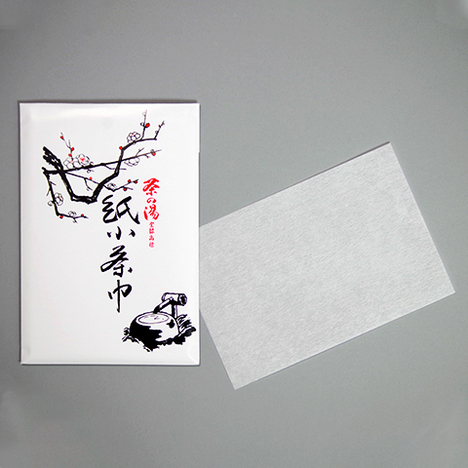 茶の湯
紙小茶巾